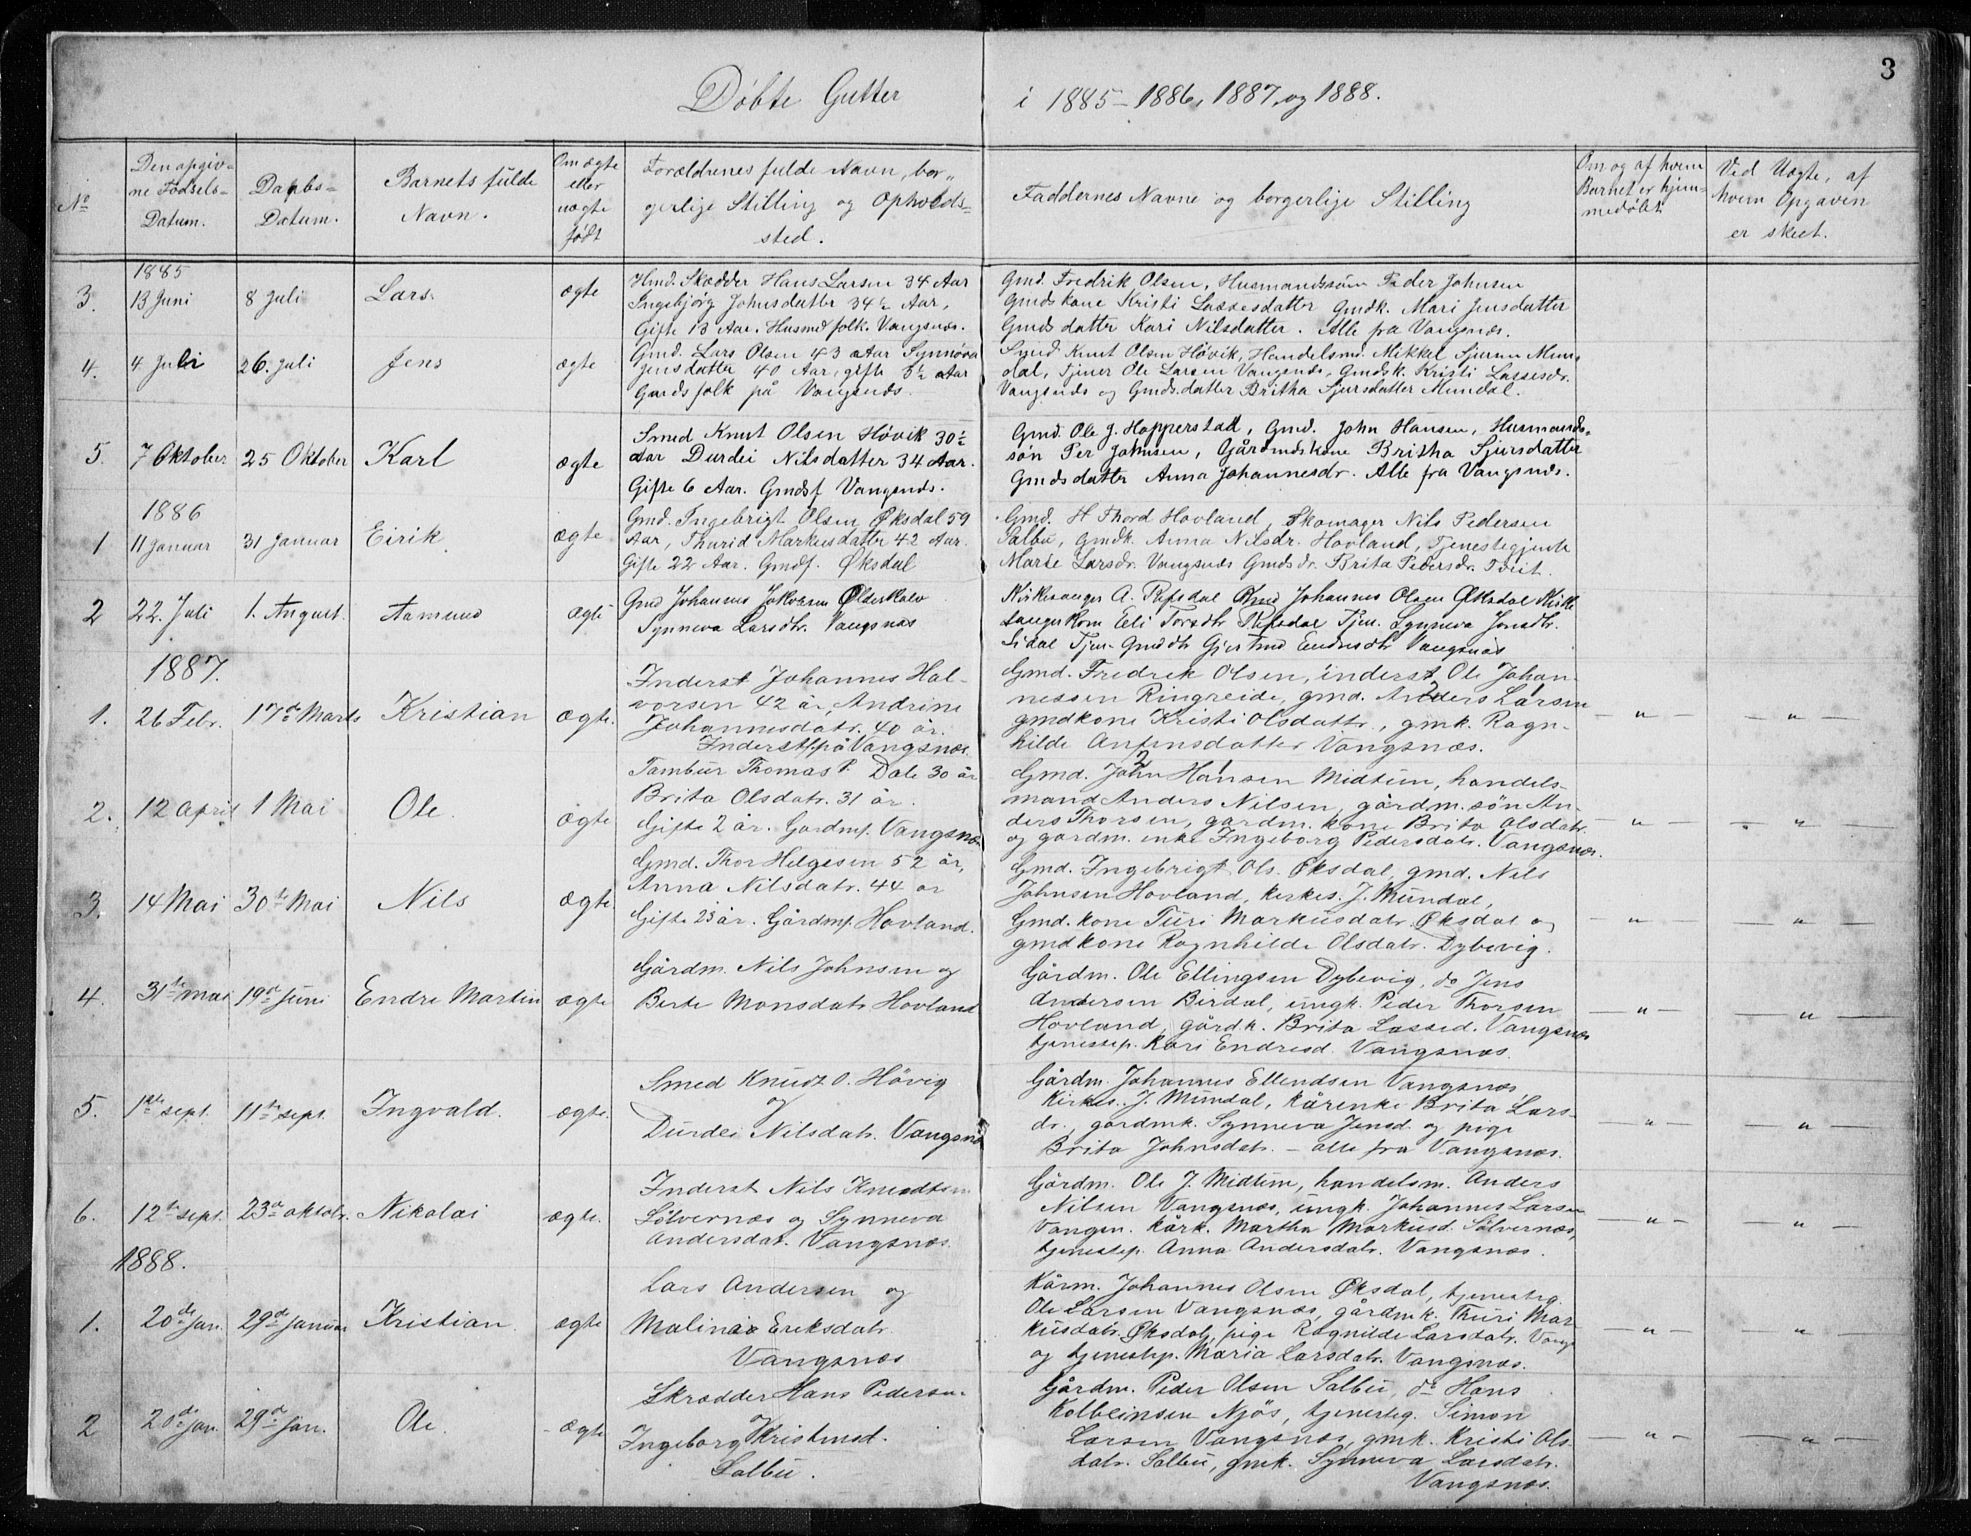 3
Døbte Gutter i 1885-1886, 1887, og 1888.
No
Den opgiv-
ne Fødsels-
Datum.
Daabs-
Datum.
Barnets fulde
Navn.
Om ægte
eller
uægte
født
Forældrenes fulde Navn, bor-
gerlige Stilling og Opholds-
sted.
Faddernes Navne og borgerlige Stilling
Om og af hvem
Barnet er hjem-
medøbt
Ved Uægte, af
hvem Opgaven
er skeet.
1885
3. 13 Juni 8 Juli Lars. ægte
Hmd. Skrædder Hans Larsen 34 Aar
Ingebjörg Johnsdatter 34½ Aar,
Gifte 13 Aar. Husmdfolk. Vangsnæs.
Gmd. Fredrik Olsen, Husmandssøn Peder Johnsen
Gmdskone Kristi Lassesdatter Gmdk. Mari Jensdatter
Gmdsdatter Kari Nilsdatter. Alle fra Vangsnæs.
4. 4 Juli 26. Juli Jens ægte
Gmd. Lars Olsen 43 Aar Synnöva
Jensdatter 40 Aar, gifte 5½ Aar
Gaardsfolk på Vangsnæs.
Smed Knut Olsen Høvik, Handelsmd. Mikkel Sjursen Mun-
dal, Tjener Ole Larsen Vangsnæs, Gmdsk. Kristi Lassesdr.
Vangsnæs og Gmds.datter Britha Sjursdatter Mundal.
5. 7 Oktober 25 Oktober Karl ægte
Smed Knut Olsen Høvik 30½
Aar Durdei Nilsdatter 34 Aar.
Gifte 6 Aar. Gmdsf Vangsnæs.
Gmd. Ole J. Hopperstad, Gmd. John Hansen, Husmands-
søn Per Johnsen, Gårdmdskone Britha Sjursdatter
Gmdsdatter Anna Johannesdr. Alle fra Vangsnæs.
1886
1 11 Januar 31 Januar Eirik ægte
Gmd. Ingebrigt Olsen Øksdal 59
Aar, Thurid Markusdatter 42 Aar.
Gifte 22 Aar. Gmdf. Øksdal
Gmd. H Thord Hovland, Skomager Nils Pedersen
Salbu, Gmdk. Anna Nilsdr. Hovland, Tjenestegjente
Marte Larsdr. Vangsnæs Gmdsdr. Brita Pedersdr. Tveit.
2 22. Juli 1. August. Aamund ægte
Gmd Johannes Jakobsen
Synneva Larsdtr. Vangsnæs
Kirkesanger A. Johannes Olsen Øksdal Kirke
sanger Kone Eli Tjen. Synneva Jensdtr.
Tjen. Gmddtr Gjertrud Vangsnæs
1887.
1. 26 Febr. 17de Marts Kristian ægte.
Inderst Johannes Hal-
vorsen 42 år, Andrine
Johannesdatr. 40 år.
Inderst på Vangsnæs.
Gmd. Fredrik Olsen, inderst Ole Johan-
nessen Ringreide, gmd. Anders Larsen
gmdkone Kristi Olsdattr., gmk. Ragn-
hilde Anfinsdatter Vangsnæs.
— " — — " —
2. 12 April 1 Mai Ole. ægte
Tambur Thomas P. Dale 30 år
Brita Olsdatr. 31 år.
Gifte 2 år. Gardmf. Vangsnæs
Gmd. John Hansen Midtun, handels-
mand Anders Nilsen, gårdm. søn An-
ders Thorsen, gardm. kone Brita Olsdatr.
og gardm. enke Ingeborg Pedersdatr. Vangsnæs.
— " — — " —
3. 14 Mai 30te Mai Nils ægte
Gmd. Thor Helgesen 52 år,
Anna Nilsdatr. 44 år
Gifte 23 år. Gårdmf. Hovland.
Gmd. Ingebrigt Ols. Øksdal, gmd. Nils
Johnsen Hovland, kirkes. J. Mundal,
Gmd. kone Turi Markusdatr. Øksdal og
gmdkone Ragnhilde Olsdatr. Dybevig.
— " — — " —
4. 31te mai 19de Juni Endre Martin ægte
Gårdm. Nils Johnsen og
Berte Monsdatr Hovland
Gårdm. Ole Ellingsen Dybevig, do Jens
Andersen Berdal, ungk. Peder Thorsen
Hovland, gårdk. Brita Lassed. Vangsnæs
tjenestep. Kari Endresd. Vangsnæs.
— " — — " —
5. 1ste sept. 11te sept. Ingvald. ægte.
Smed Knudt O. Hövig
og
Durdei Nilsdatr. Vangsnæs
Gårdm. Johannes Ellendsen Vangsnæs
Kirkes. J. Mundal, kårenke Brita Lars-
dr., gårdmk. Synneva Jensd. og pige
Brita Johnsdatr. – alle fra Vangsnæs.
— " — — " —
6. 12te sept. 23de oktobr. Nikolai ægte.
Inderst Nils Knudtsen
Sölvernæs og Synneva
Andersdat. Vangsnæs.
Gårdm. Ole J. Midtun, handelsm. Anders
Nilsen Vangsnæs, ungk. Johannes Larsen
Vangsn. kårk. Martha Markusd. Sölvernæs,
tjenestep. Anna Andersdatr. Vangsnæs.
— " — — " —
1888.
1. 20de Jan. 29de Januar Kristian. ægte
Lars Andersen og
Malina Eriksdatr.
Vangsnæs
Kårm. Johannes Olsen Øksdal, tjenesteg.
Ole Larsen Vangsnæs, gårdmk. Thuri Mar-
kusdatr. Øksdal, pige Ragnilde Larsdatr. Vangs
og tjenestep. Maria Larsdatr. Vangsnæs.
— " — — " —
2 20de Jan. 29de Jan. Ole. ægte
Skrædder Hans Pedersen
Ingeborg Kristensd.
Salbu.
Gårdm. Peder Olsen Salbu, do Hans
Kolbeinsen Njøs, tjenesteg. Simon
Larsen Vangsnæs, gmk. Kristi Ols-
datr. Salbu, gmk. Synneva Larsdatr.
Vangsnæs.
— " — — " —